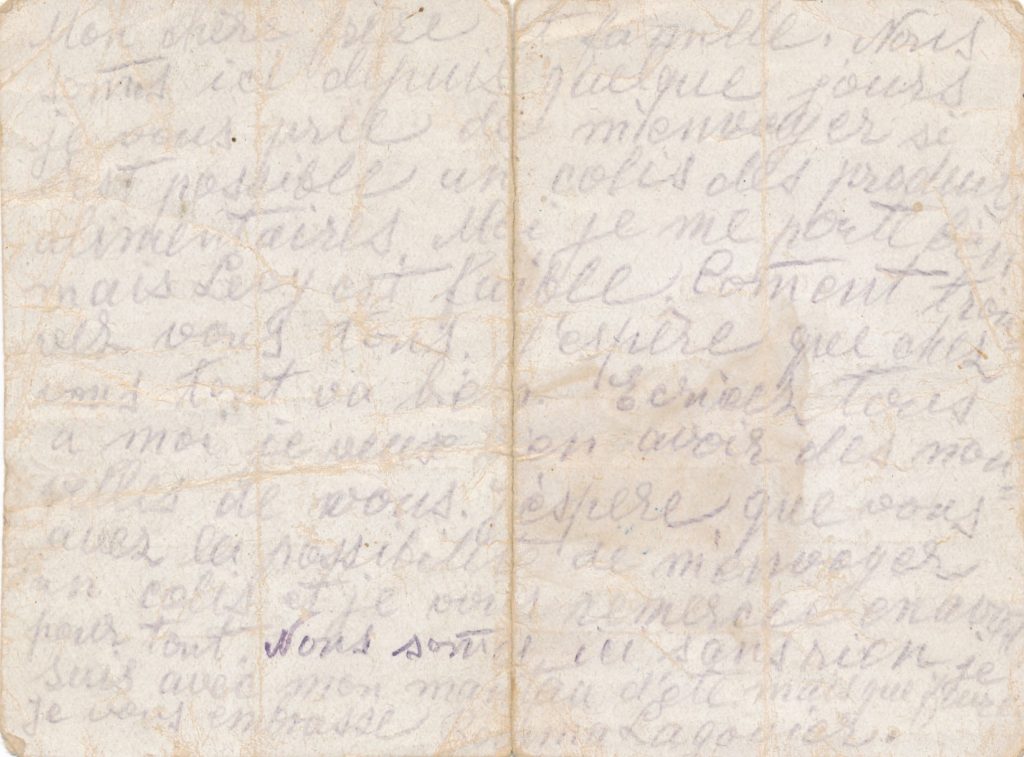 Mon chère frère et famille. Nous
somes ici depuis quelque jours
je vous prie de m'envoyer si
est possible un colis des produits
alimentaires, Moi je me porte bien
mais Levy est faible. Coment trou=
vez vous tous. J'espère que chez
vous tout va bien. Ecrivez tous
a moi je veux en avoir des nou=
velles de vous. J'espère que vous
avez la possibilité de m'envoyer
un colis et je vous remercie en avant
pour tout. Nous somes ici sans rien je
suis avec mon manteau d'été mais que faire
je vous embrasse Lagovier.